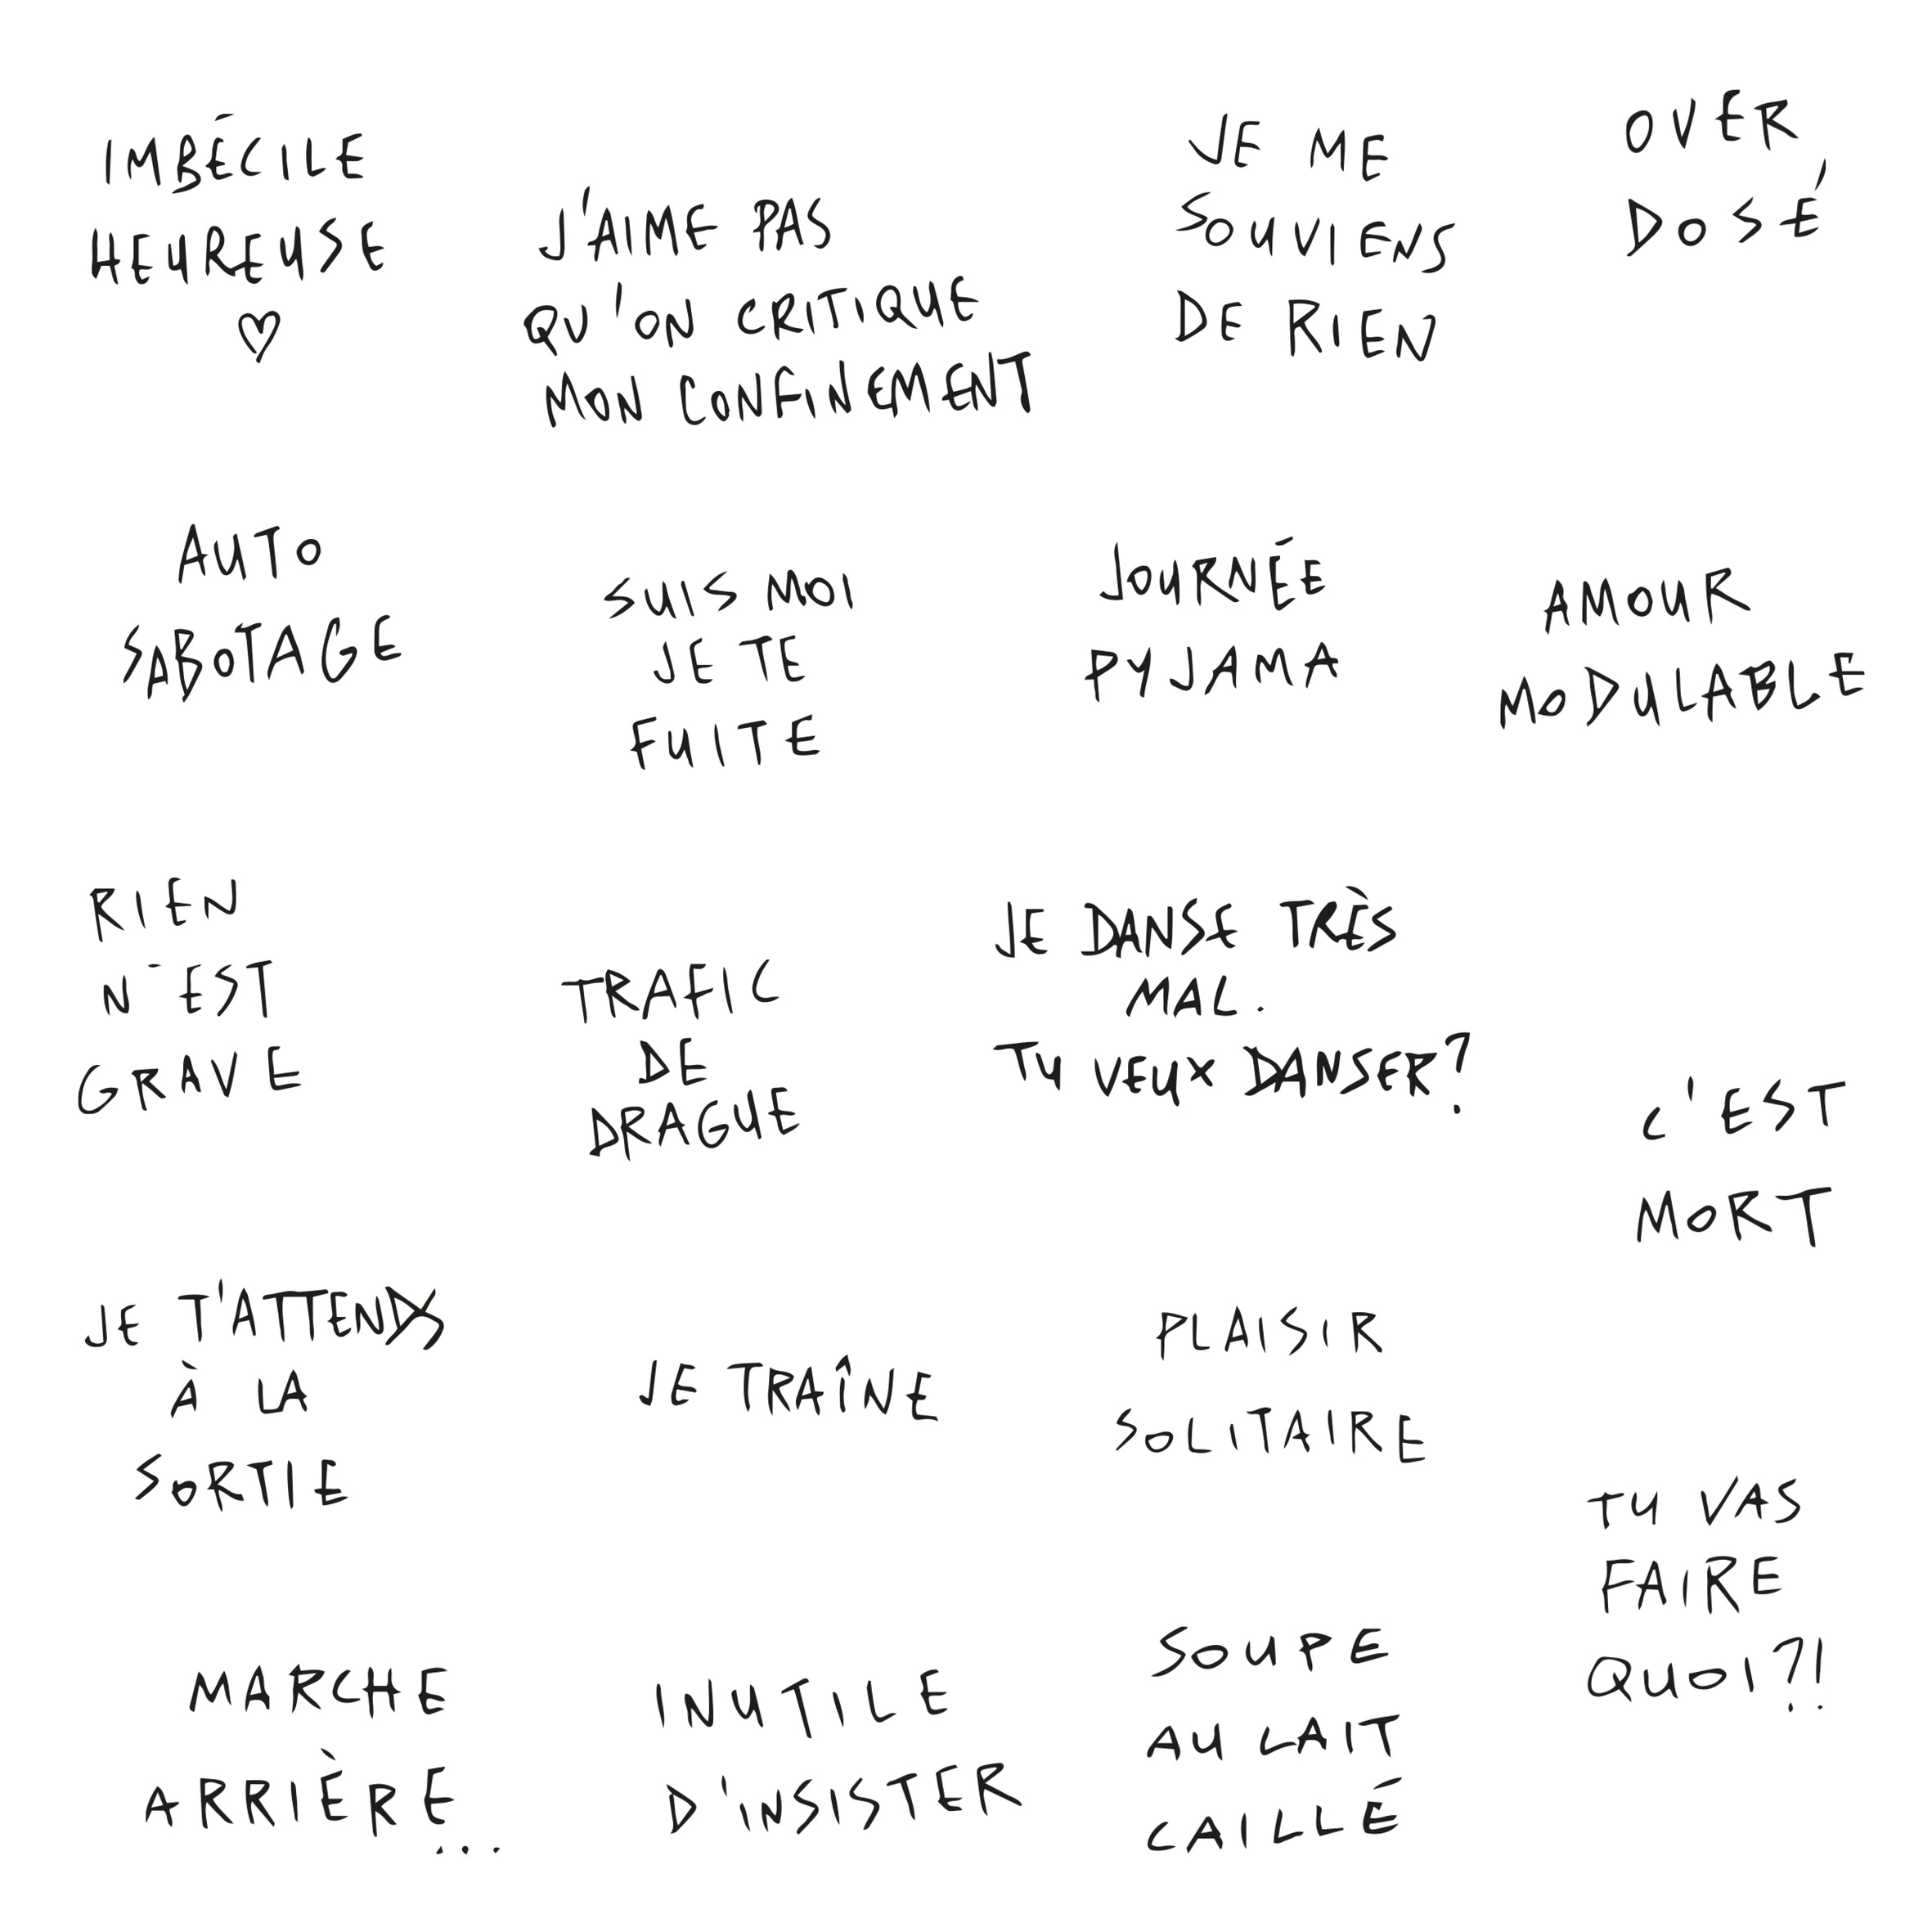 IMBÉCILE
HEUREUSE
♡
J'AIME PAS
QU'ON CRITIQUE
MON CONFINEMENT
JE ME
SOUVIENS
DE RIEN
OVER
DOSÉ
AUTO
SABOTAGE
SUIS MOI
JE TE
FUITE
JOURNÉE
PYJAMA
AMOUR
MODULABLE
RIEN
N'EST
GRAVE
TRAFIC
DE
DRAGUE
JE DANSE TRÈS
MAL.
TU VEUX DANSER?
C'EST
MORT
JE T'ATTENDS
À LA
SORTIE
JE TRAÎNE
PLAISIR
SOLITAIRE
TU VAS
FAIRE
QUOI?!
MARCHE
ARRIÈRE...
INUTILE
D'INSISTER
SOUPE
AU LAIT
CAILLÉ